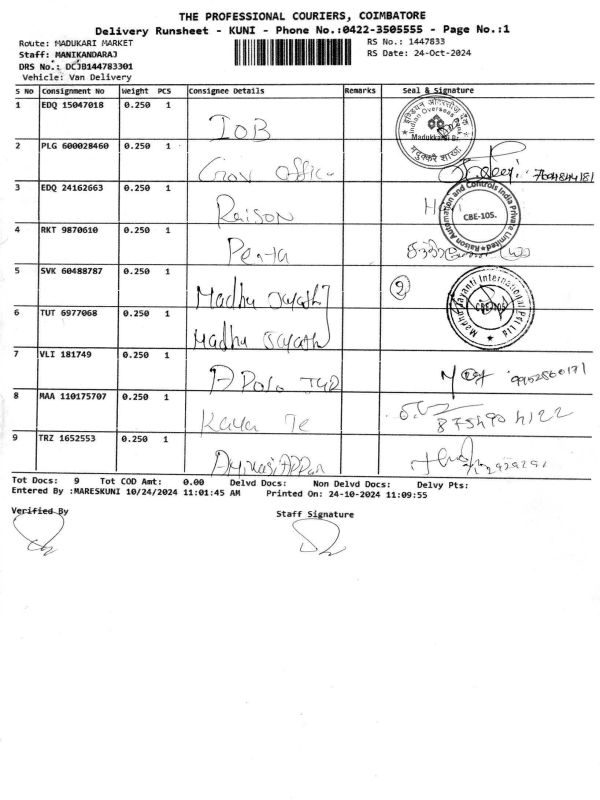 THE PROFESSIONAL COURIERS, COIMBATORE
Delivery Runsheet - KUNI - Phone No.:0422-3505555 - Page No.:1
Route: MADUKARI MARKET
RS No.: 1447833
Staff: MANIKANDARAJ
RS Date: 24-Oct-2024
DRS No.: DCJB144783301
Vehicle: Van Delivery
S No Consignment No Weight PCS Consignee Details Remarks Seal & Signature
1 EDQ 15047018 0.250 1 IOB
इण्डियन ओवरसीज़ बैंक Indian Overseas Bank Madukkarai Br. मदुक्करै शाखा
2 PLG 600028460 0.250 1 Gov office
3 EDQ 24162663 0.250 1 Raison
Raison Automation and Controls India Private Limited CBE-105.
4 RKT 9870610 0.250 1 Penta
5 SVK 60488787 0.250 1 Madhu Jayathi 2
Madhu Jayanti International Pvt Ltd CBE-105
6 TUT 6977068 0.250 1 Madhu Jayathi
7 VLI 181749 0.250 1 Apolo 9952560171
8 MAA 110175707 0.250 1 Kaya Te 8754904122
9 TRZ 1652553 0.250 1
Tot Docs: 9 Tot COD Amt: 0.00 Delvd Docs: Non Delvd Docs: Delvy Pts:
Entered By :MARESKUNI 10/24/2024 11:01:45 AM Printed On: 24-10-2024 11:09:55
Verified By Staff Signature